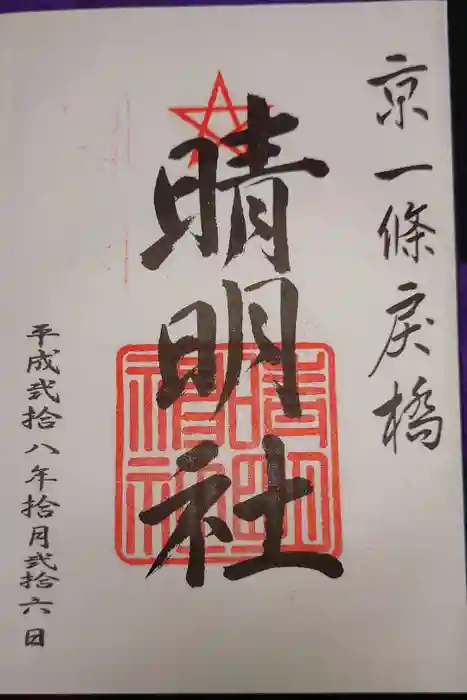 京一條戻橋
晴明社
晴明
神社
平成弐拾八年拾月弐拾六日